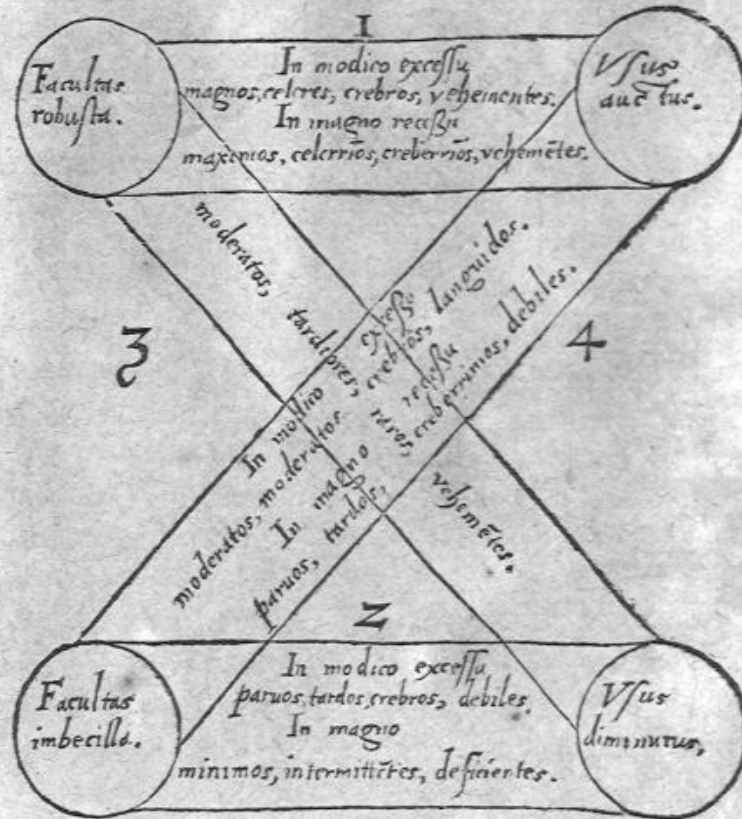 1
Facultas
robuſta.
In modico exceſſu
magnos, celeres, crebros, vehementes.
In magno receſſu
maximos, celerrīos, creberrīos, vehemētes.
Vſus
auctus.
moderatos, tardiores, raros, vehemētes.
3
4
In modico exceſſu
moderatos, moderatos crebros, languidos.
In magno receſſu
paruos, tardos, creberrimos, debiles.
2
Facultas
imbecilla.
In modico exceſſu
paruos, tardos, crebros, debiles.
In magno
minimos, intermittētes, deficientes.
Vſus
diminutus,